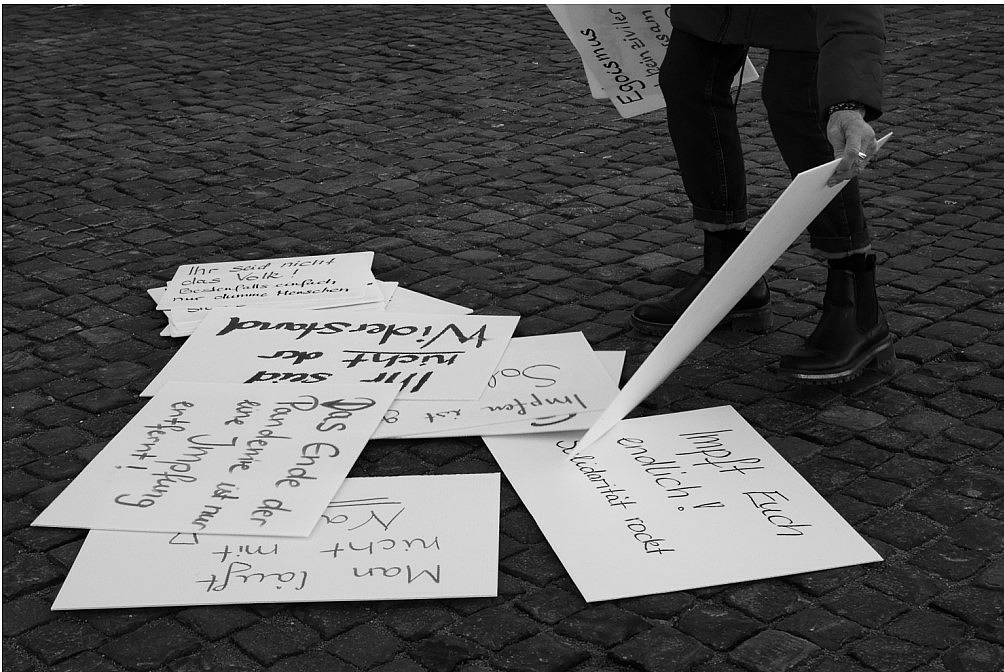 Egoismus
kein ziviler
Ihr seid nicht
das Volk!
Bestenfalls einfach
nur dumme Menschen
Ihr seid
nicht der
Widerstand
Impfen ist
Das Ende der
Pandemie ist nur
eine Impfung
entfernt!
Man läuft
nicht mit
Impft Euch
endlich!
Solidarität rockt